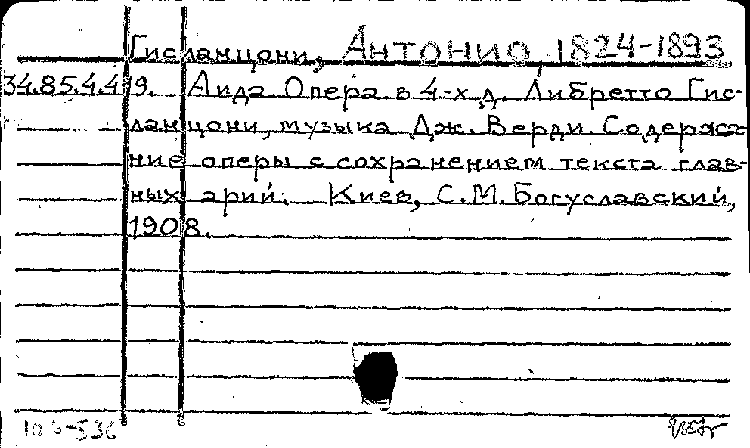 Гисланцони, Антонио, 1824-1893
34.85.4.49. Аида Опера в 4-х д. Либретто Гис-
ланцони, музыка Дж. Верди. Содержа-
ние оперы с сохранением текста глав-
ных арий. Киев, С.М. Богуславский,
1908.